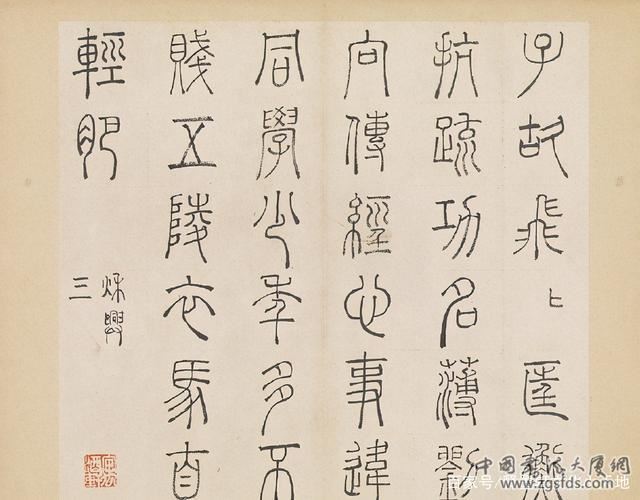 子故飛〻匡衡
抗疏功名薄劉
向傳經心事違
同學少年多不
賤五陵衣馬自
輕肥
秋興
三
中國 大厦網
www.zgsfds.com
百家号